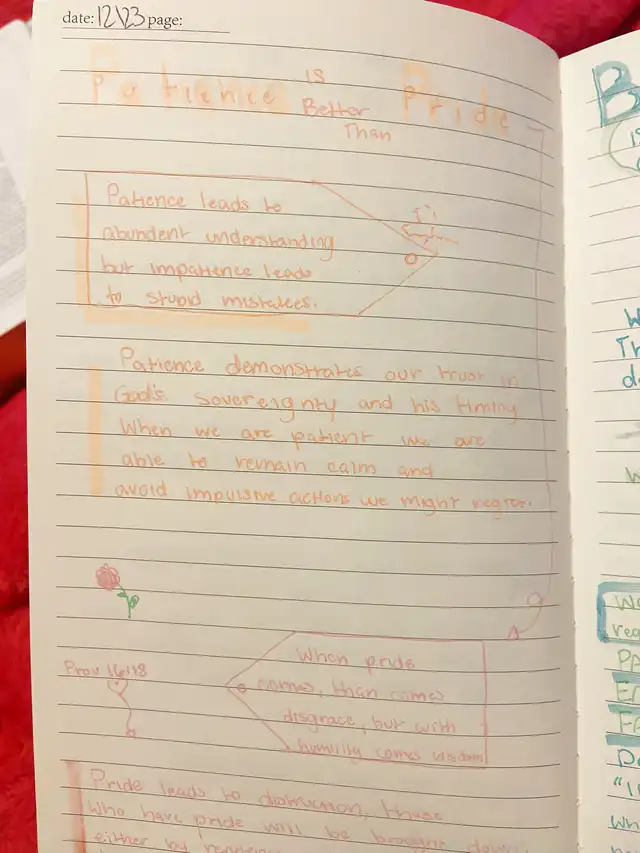 date: 12\23 page:
Patience is Pride
Better
Than
Patience leads to
abundent understanding
but impatience leads
to stupid mistakes.
Patience demonstrates our trust in
God's sovereignty and his timing
When we are patient we are
able to remain calm and
avoid impulsive actions we might regret.
Prov 16:18
When pride
comes, than comes
disgrace, but with
humility comes wisdom
Pride leads to distruction, those
Who have pride will be brought down
either by
B
W
Th
d
W
Wa
rea
PA
E
FA
D
"I
Wh